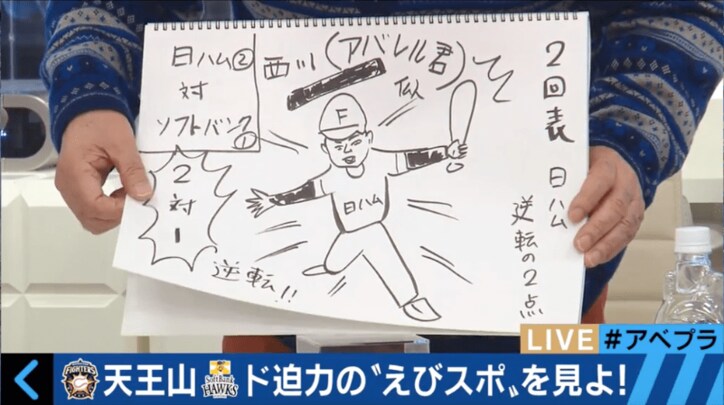 2回表 日ハム
逆転の2点
西川(アバレル君)
似
日ハム②
対
ソフトバンク①
2
対
1
逆転!!
F
日ハム
LIVE #アベプラ
FIGHTERS
天王山
SoftBank
HAWKS
ド迫力の〝えびスポ〟を見よ!